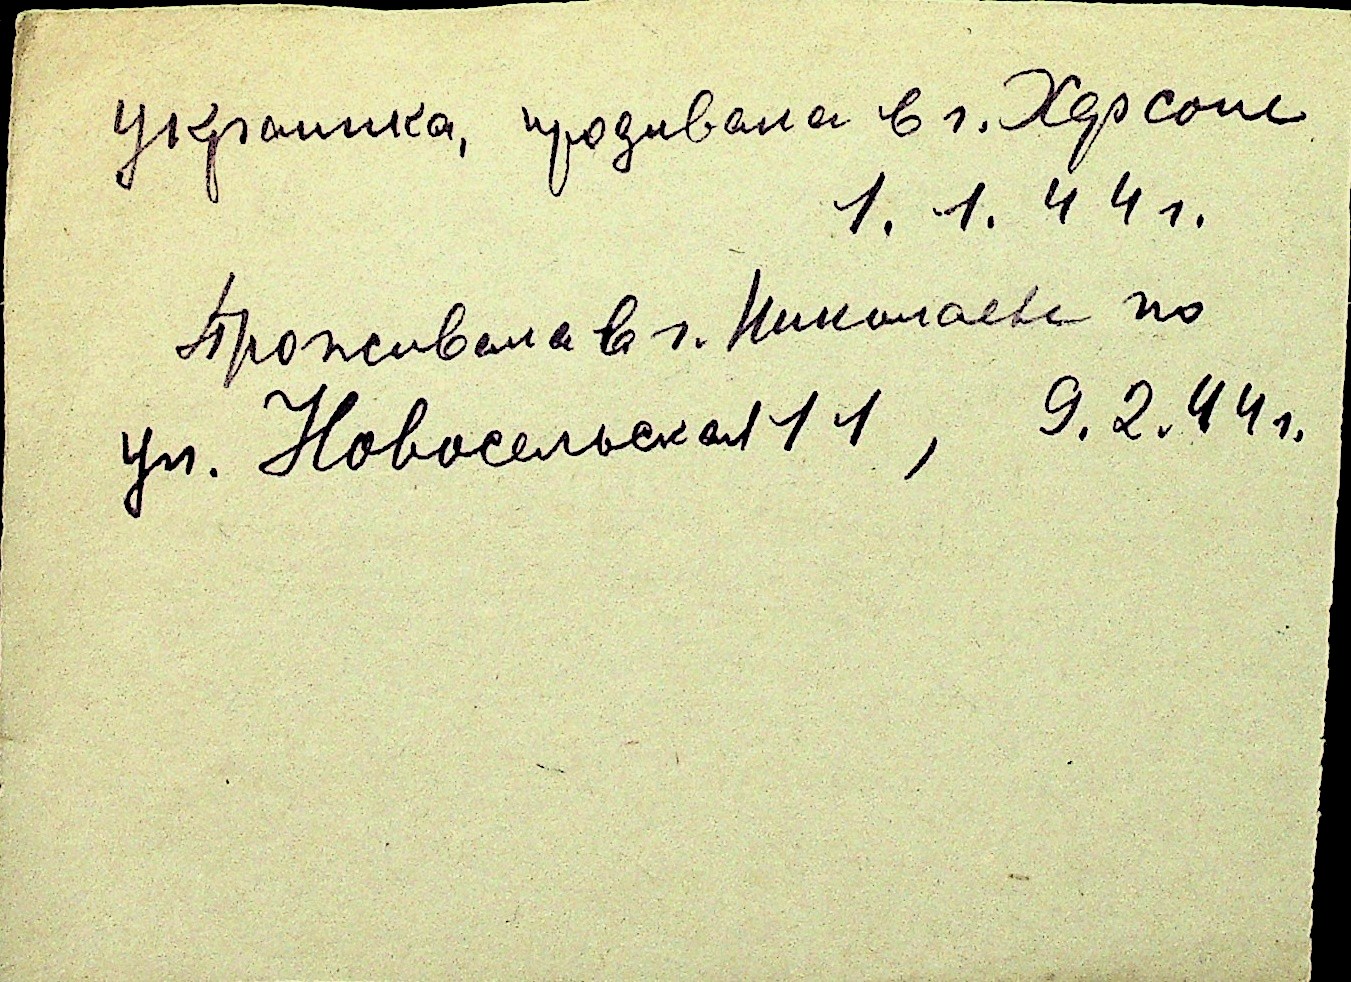 украинка, проживала в г. Херсоне
1. 1. 44 г.
Проживала в г. Николаеве по
ул. Новосельская 11, 9.2.44 г.